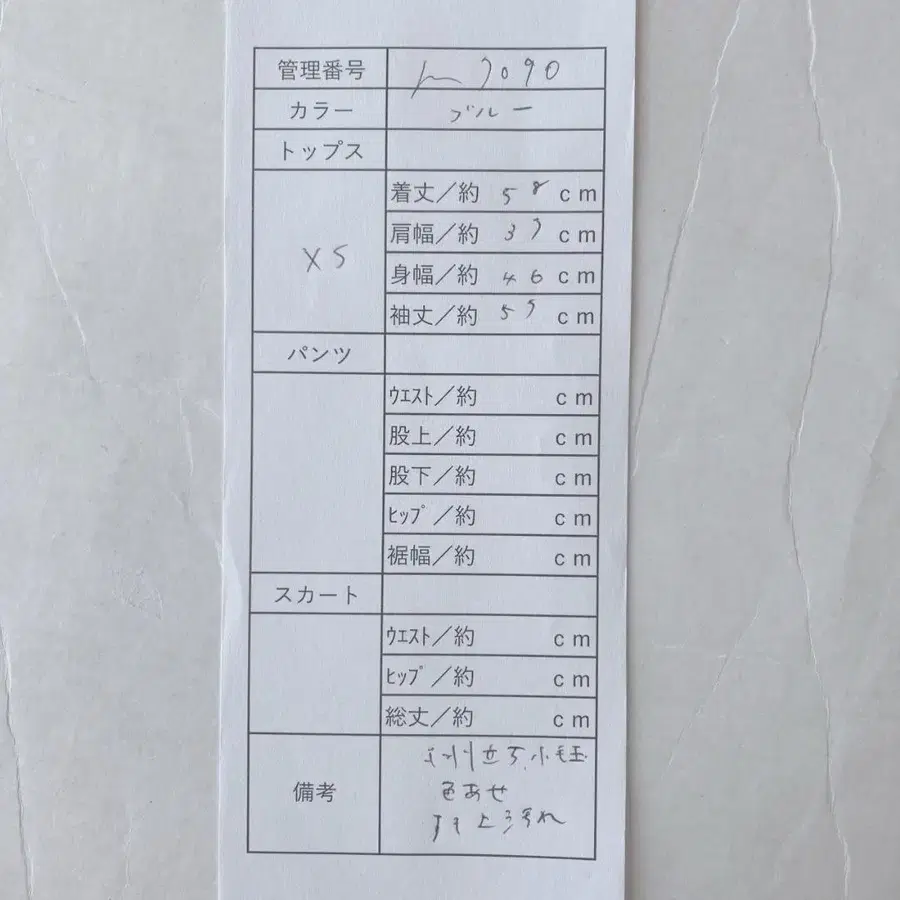 管理番号 7090
カラー ブルー
トップス
XS
着丈／約 58 cm
肩幅／約 37 cm
身幅／約 46 cm
袖丈／約 57 cm
パンツ
ｳｴｽﾄ／約 cm
股上／約 cm
股下／約 cm
ﾋｯﾌﾟ／約 cm
裾幅／約 cm
スカート
ｳｴｽﾄ／約 cm
ﾋｯﾌﾟ／約 cm
総丈／約 cm
備考
立ち、小毛玉
色あせ
汚れ